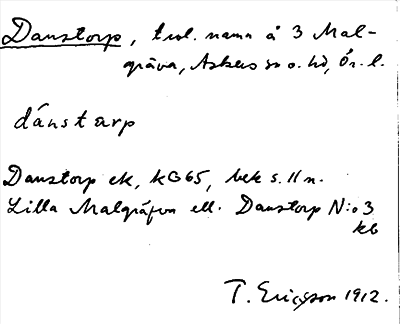 Danstorp, trol. namn å 3 Mal-
gräva, Askers sn o. hd, Ör. l.
dánstarp
Danstorp ek, KG65, bek s. 11 n.
Lilla Malgräfva ell. Danstorp N:o 3
kb
T. Ericsson 1912.